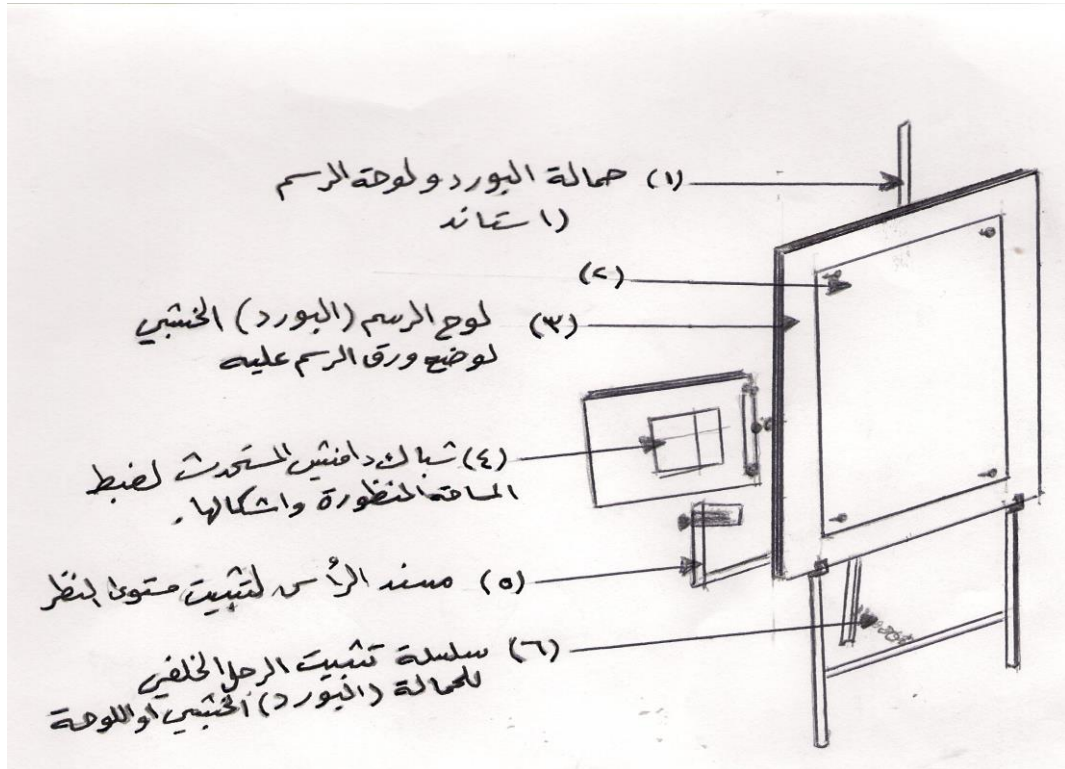 (١) حمالة البورد و لوحة الرسم
(استاند
(٢)
(٣) لوح الرسم (البورد) الخشبي
لوضع ورق الرسم عليه
(٤) شباك دافنشي المستحدث لضبط
المساحة المنظورة واشكالها .
(٥) مسند الرأس لتثبيت مستوى النظر
(٦) سلسلة تثبيت الرجل الخلفي
للحمالة (البورد) الخشبي او اللوحة